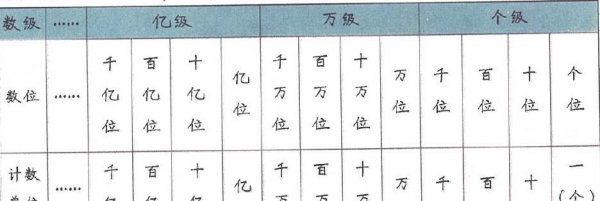 数级 …… 亿级 万级 个级
数位 …… 千亿位 百亿位 十亿位 亿位 千万位 百万位 十万位 万位 千位 百位 十位 个位
计数 …… 千 百 十 亿 千 百 十 万 千 百 十 一(个)